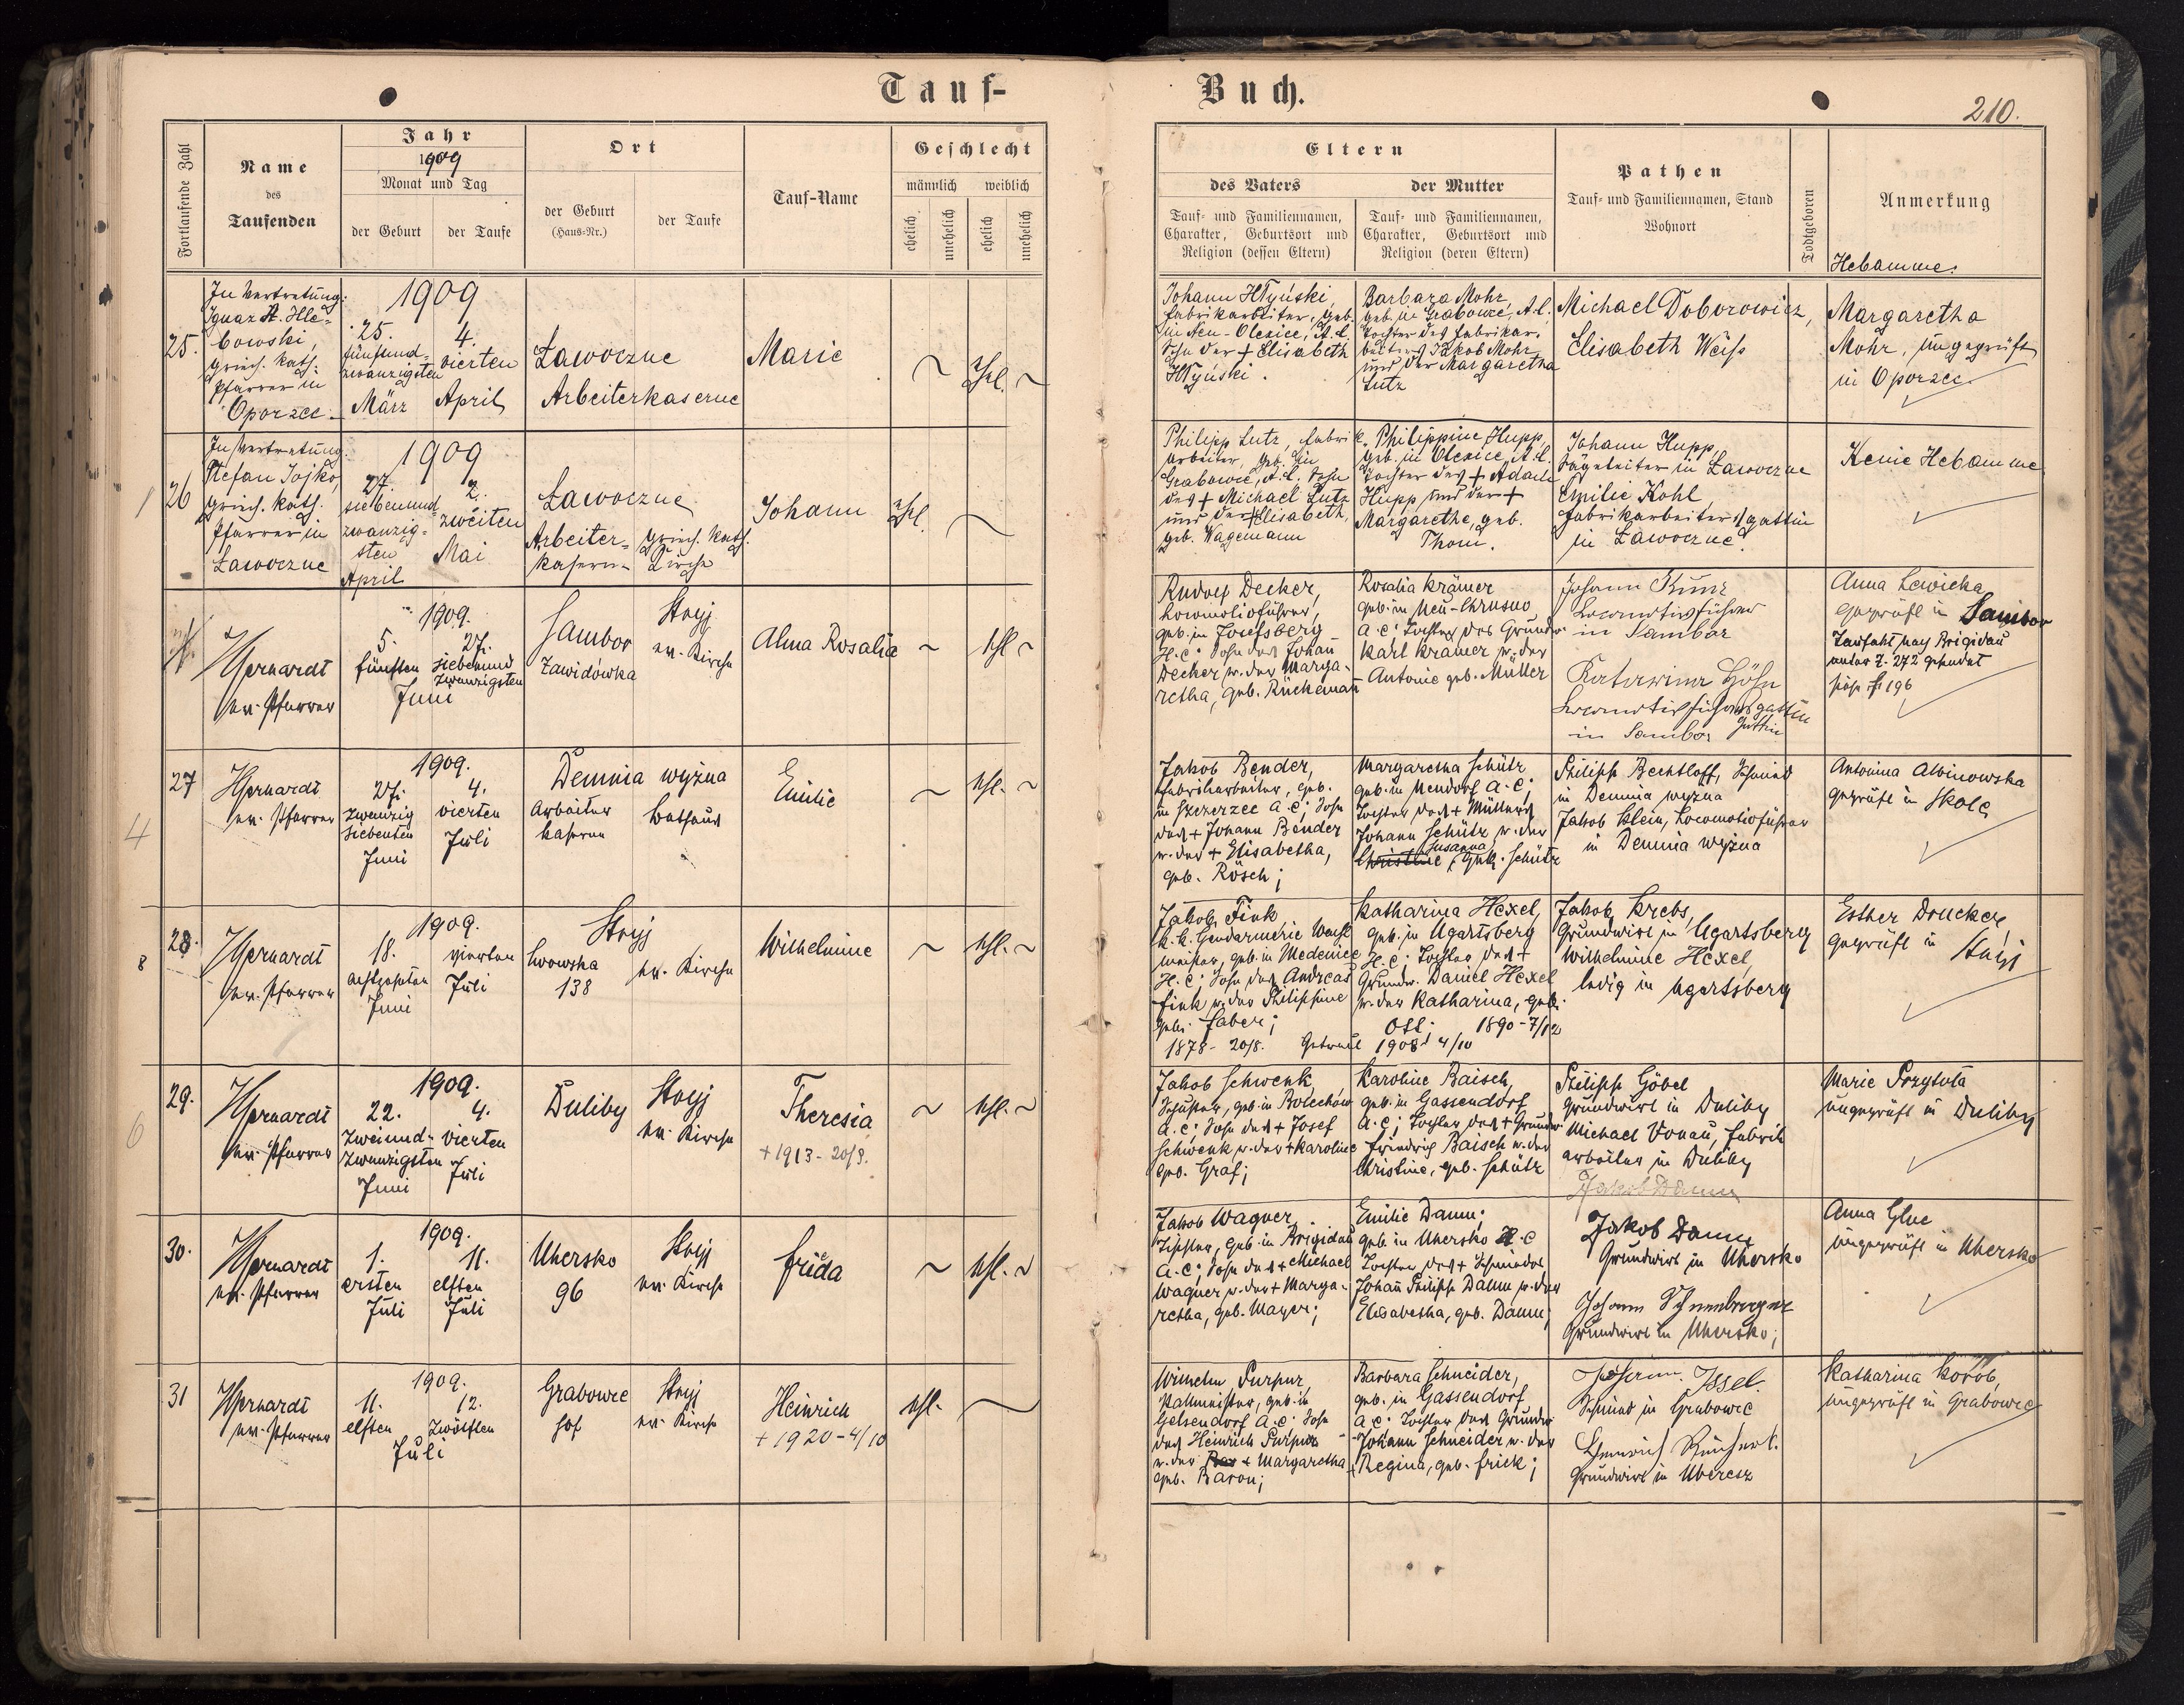 Tauf-
Buch.
210.
Fortlaufende Zahl
Name
des
Taufenden
Jahr
1909
Monat und Tag
der Geburt
der Taufe
Ort
der Geburt
(Haus-Nr.)
der Taufe
Tauf-Name
Geschlecht
männlich
weiblich
ehelich
unehelich
ehelich
unehelich
Eltern
des Vaters
Tauf- und Familiennamen,
Charakter, Geburtsort und
Religion (dessen Eltern)
der Mutter
Tauf- und Familiennamen,
Charakter, Geburtsort und
Religion (deren Eltern)
Pathen
Tauf- und Familiennamen, Stand
Wohnort
Todtgeboren
Anmerkung
Hebamme.
25.
In Vertretung:
Ignaz H. Hle-
bowski,
griech. kath.
Pfarrer in
Oporzec
1909
25.
fünfund-
zwanzigsten
März
4.
vierten
April
Ławoczne
Arbeiterkaserne
Marie
ehel.
Johann Hłyński,
Fabrikarbeiter, geb.
in Neu-Olexice, A.C.
Sohn der + Elisabeth
Hłyński.
Barbara Mohr,
geb. in Grabowce, A.C.
Tochter des Fabrikar-
beiters Jakob Mohr
und der Margaretha
Lutz
Michael Doborowicz,
Elisabeth Weiss
Margaretha
Mohr, ungeprüft
in Oporzec
1
26
In Vertretung
Stefan Jojko,
griech. kath.
Pfarrer in
Ławoczne
1909
27.
siebenund
zwanzig-
sten
April
2.
zweiten
Mai
Ławoczne
Arbeiter-
kasern-
griech. kath.
Kirche
Johann
ehel.
Philipp Lutz, Fabrik-
arbeiter, geb. in
Grabowce, A.C. Sohn
des + Michael Lutz
und der + Elisabeth,
geb. Wagemann
Philippine Hupp,
geb. in Olexice, A.C.
Tochter des + Adam
Hupp und der +
Margarethe, geb.
Thom.
Johann Hupp,
Sägeleiter in Ławoczne
Emilie Kohl,
Fabrikarbeitersgattin
in Ławoczne
Keine Hebamme
Gerhardt
ev. Pfarrer
1909.
5.
fünften
27.
siebenund
zwanzigsten
Juni
Sambor
Zawidówka
Stryj
ev. Kirche
Alma Rosalia
ehl
Rudolf Decker,
Locomotivführer,
geb. in Josefsberg
H.C; Sohn des Johann
Decker u. der Marga-
retha, geb. Rückemann
Rosalia Krämer
geb. in Neu-Chrusno
A.C; Tochter des Grundw.
Karl Krämer u. der
Antonie geb. Müller
Johann Kunz
Locomotivführer
in Sambor
Katarina Höhn
Locomotivführersgattin
Gattin
in Sambor
Anna Lewicka
geprüft in Sambor
Taufakt nach Brigidau
unter Z. 272 gesendet
siehe S. 196
4
27
Gerhardt
ev. Pfarrer
1909.
27.
zwanzig
siebenten
Juni
4.
vierten
Juli
Demnia wyżna
Arbeiter
kaserne
Bethaus
Emilie
ehl.
Jakob Bender,
Fabrikarbeiter, geb.
in Szczerzec A.C; Sohn
des + Johann Bender
u. der + Elisabetha,
geb. Rösch;
Margaretha Schütz
geb. in Neudorf A.C;
Tochter des + Müllers
Johann Schütz u. der
Susanna
Christine, geb. Schütz
Philipp Bechtloff, Schmied
in Demnia wyżna
Jakob Klein, Locomotivführer
in Demnia wyżna
Antonina Albinowska
geprüft in Skole
8
28.
Gerhardt
ev. Pfarrer
1909.
18.
achtzehnten
Juni
vierten
Juli
Stryj
Lwowska
138
ev. Kirche
Wilhelmine
ehl.
Jakob Fink
k. k. Gendarmerie Wacht
meister, geb. in Medenice
H.C; Sohn des Andreas
Fink u. der Philippine
geb. Faber;
1878 - 20/8.
Getraut 1908 4/10
Katharina Hexel,
geb. in Ugartsberg
H.C; Tochter des +
Grundw. Daniel Hexel
u. der Katharina, geb.
Ott. 1890 - 7/12
Jakob Krebs,
Grundwirt in Ugartsberg
Wilhelmine Hexel,
ledig in Ugartsberg
Esther Drucker,
geprüft in Stryj
6
29.
Gerhardt
ev. Pfarrer
1909.
22.
zweiund-
zwanzigsten
Juni
4.
vierten
Juli
Duliby
Stryj
ev. Kirche
Theresia
+ 1913 - 20/8.
ehl.
Jakob Schwenk,
Schuster, geb. in Bolechów
A.C; Sohn des + Josef
Schwenk u. der + Karoline
geb. Graf;
Karoline Baisch,
geb. in Gassendorf
A.C; Tochter des + Grundw.
Friedrich Baisch u. der
Christine, geb. Schütz
Philipp Göbel
Grundwirt in Duliby
Michael Vonau, Fabrik
arbeiter in Duliby
Jakob Damm
Marie Przytuła
ungeprüft in Duliby
30.
Gerhardt
ev. Pfarrer
1909.
1.
ersten
Juli
11.
elften
Juli
Uhersko
96
Stryj
ev. Kirche
Frida
ehl.
Jakob Wagner
Tischler, geb. in Brigidau
A.C; Sohn des + Michael
Wagner u. der + Marga-
retha, geb. Mayer;
Emilie Damm;
geb. in Uhersko H.C
Tochter des + Schmiedes
Johann Philipp Damm u. der
Elisabetha, geb. Damm;
Jakob Damm
Grundwirt in Uhersko
Johann
Grundwirt in Uhersko;
Anna Gluc
ungeprüft in Uhersko
31
Gerhardt
ev. Pfarrer
1909.
11.
elften
12.
zwölften
Juli
Grabowce
Hof
Stryj
ev. Kirche
Heinrich
+ 1920 - 4/10
ehl.
Wilhelm Purpur
Stallmeister, geb. in
Gelsendorf A.C; Sohn
des Heinrich Purpur
u. der + Margaretha
geb. Baron;
Barbara Schneider,
geb. in Gassendorf
A.C; Tochter des Grundw.
Johann Schneider u. der
Regina, geb. Frick;
Johann Issel.
Schmied in Grabowce
Heinrich
Grundwirt in Uhersko
Katharina Korob,
ungeprüft in Grabowce